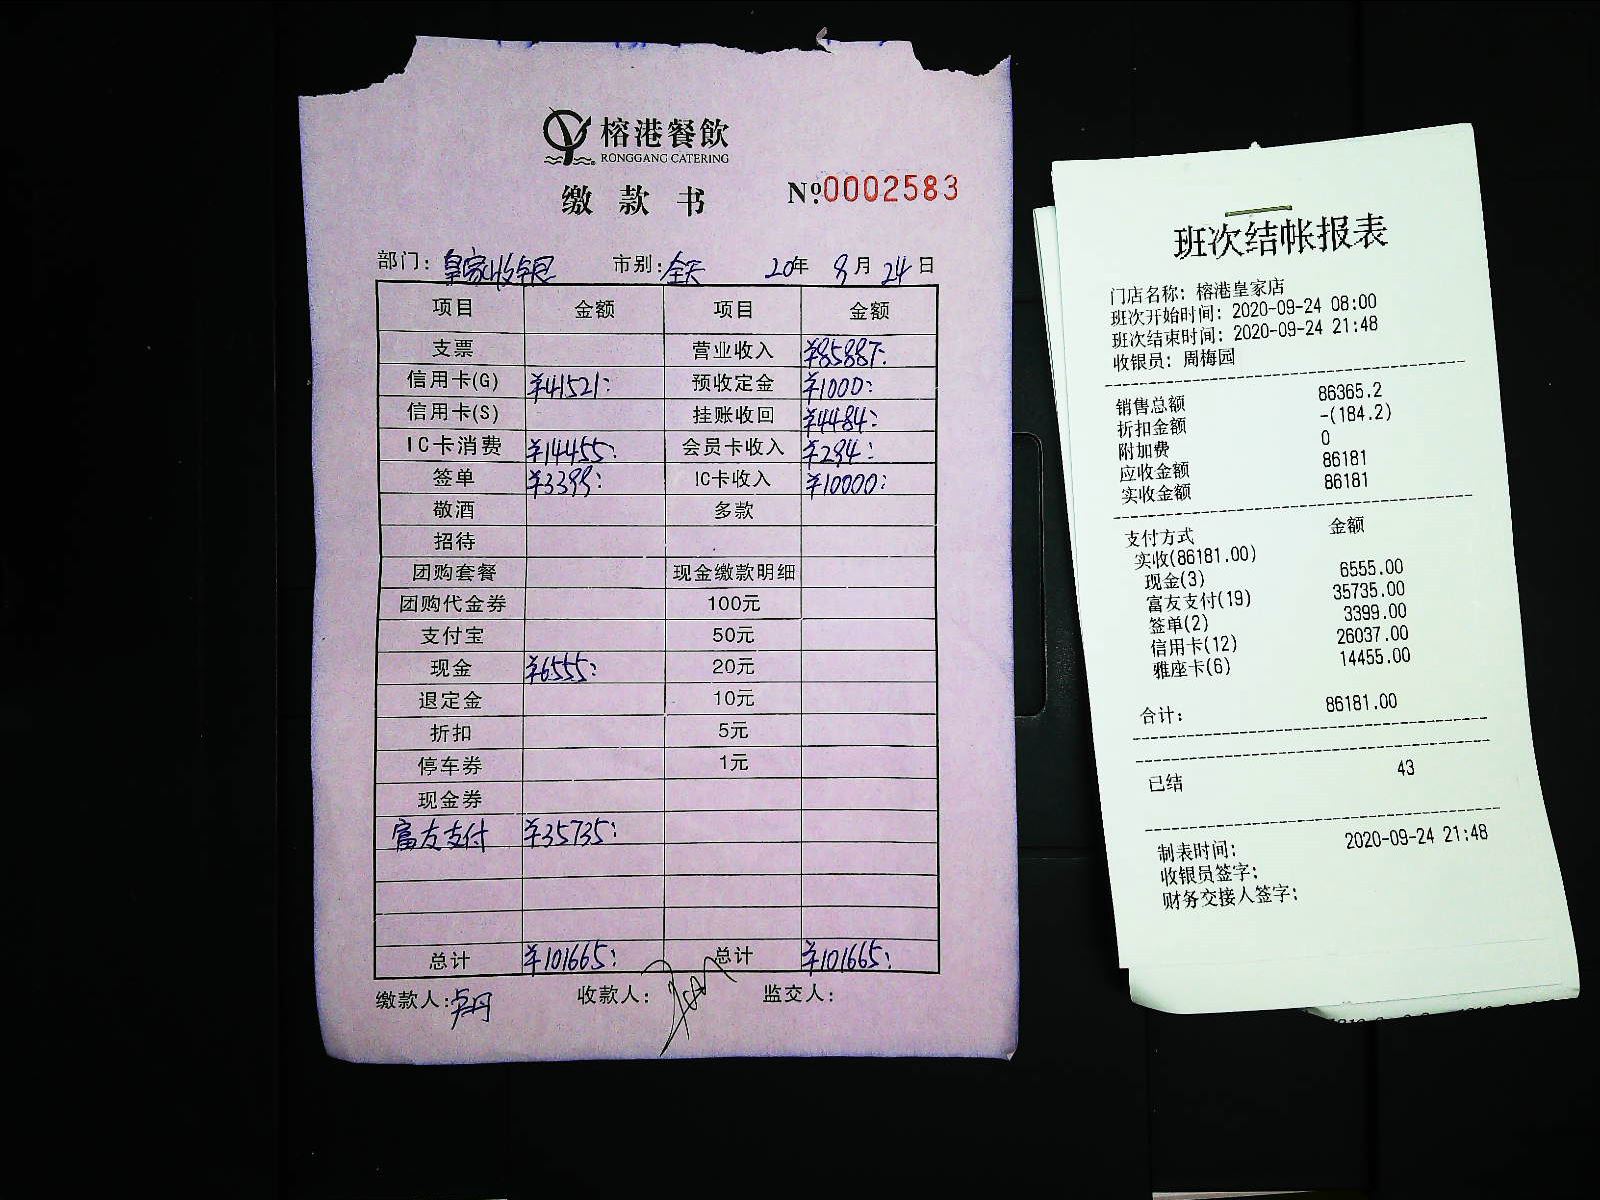 榕港餐飲
RONGGANG CATERING
缴款书 №:0002583
部门:皇家收银 市别:全天 20年 9月 24日
项目 金额 项目 金额
支票 营业收入 ¥85887:
信用卡(G) ¥41521: 预收定金 ¥1000:
信用卡(S) 挂账收回 ¥4484:
IC卡消费 ¥14455: 会员卡收入 ¥294:
签单 ¥3399: IC卡收入 ¥10000:
敬酒 多款
招待
团购套餐 现金缴款明细
团购代金券 100元
支付宝 50元
现金 ¥6555: 20元
退定金 10元
折扣 5元
停车券 1元
现金券
富友支付 ¥35735:
总计 ¥101665: 总计 ¥101665:
缴款人:卢丹 收款人: 监交人:
班次结帐报表
门店名称: 榕港皇家店
班次开始时间: 2020-09-24 08:00
班次结束时间: 2020-09-24 21:48
收银员: 周梅园
销售总额 86365.2
折扣金额 -(184.2)
附加费 0
应收金额 86181
实收金额 86181
支付方式 金额
实收(86181.00)
现金(3) 6555.00
富友支付(19) 35735.00
签单(2) 3399.00
信用卡(12) 26037.00
雅座卡(6) 14455.00
合计: 86181.00
已结 43
制表时间: 2020-09-24 21:48
收银员签字:
财务交接人签字: